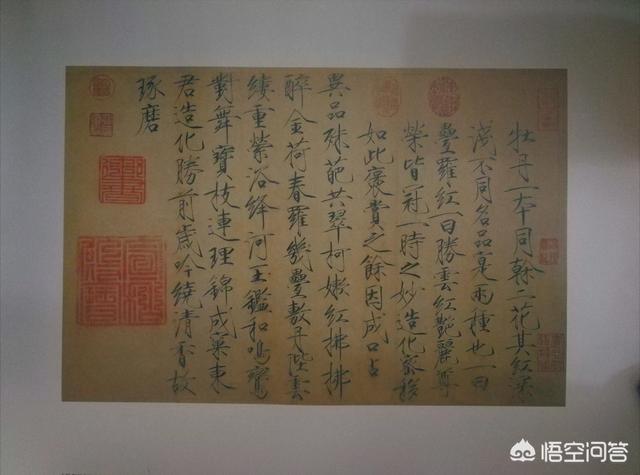 牡丹一本同榦二花其紅深
淺不同名品寔兩種也一曰
疊羅紅一曰勝雲紅艷麗尊
榮皆冠一時之妙造化密移
如此褒賞之餘因成口占
異品殊葩共翠柯嫩紅拂拂
醉金荷春羅幾疊敷丹陛雲
縷重縈浴絳河玉鑑和鳴鸞
對舞寶枝連理錦成窠東
君造化勝前歲吟繞清香故
琢磨
悟空问答